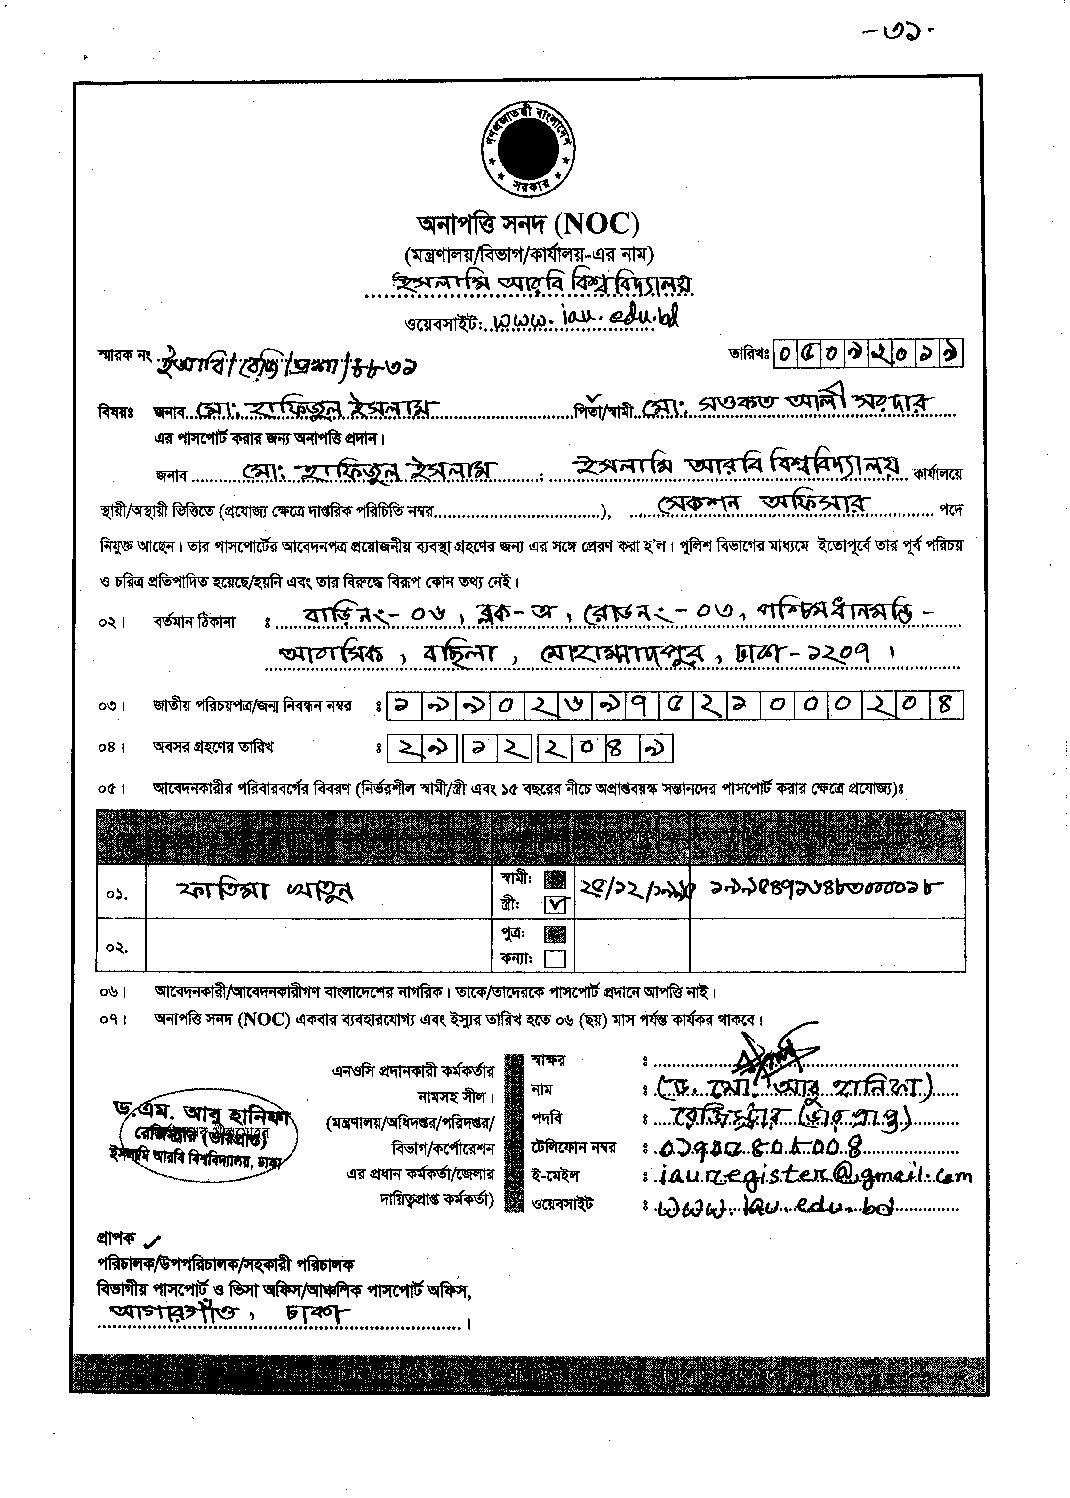 -৩১-
গণপ্রজাতন্ত্রী বাংলাদেশ
সরকার
অনাপত্তি সনদ (NOC)
(মন্ত্রণালয়/বিভাগ/কার্যালয়-এর নাম)
ইসলামি আরবি বিশ্ববিদ্যালয়
ওয়েবসাইট: www.iau.edu.bd
স্মারক নং ইআবি/রেজি/প্রশা/ তারিখঃ ০৫০৯২০১৯
বিষয়ঃ জনাব মো: হাফিজুল ইসলাম পিতা/স্বামী মো: সওকত আলী সরদার
এর পাসপোর্ট করার জন্য অনাপত্তি প্রদান।
জনাব মো: হাফিজুল ইসলাম, ইসলামি আরবি বিশ্ববিদ্যালয় কার্যালয়ে
স্থায়ী/অস্থায়ী ভিত্তিতে (প্রযোজ্য ক্ষেত্রে দাপ্তরিক পরিচিতি নম্বর), সেকশন অফিসার পদে
নিযুক্ত আছেন। তার পাসপোর্টের আবেদনপত্র প্রয়োজনীয় ব্যবস্থা গ্রহণের জন্য এর সঙ্গে প্রেরণ করা হ'ল। পুলিশ বিভাগের মাধ্যমে ইতোপূর্বে তার পূর্ব পরিচয়
ও চরিত্র প্রতিপাদিত হয়েছে/হয়নি এবং তার বিরুদ্ধে বিরূপ কোন তথ্য নেই।
০২। বর্তমান ঠিকানা ঃ বাড়ি নং- ০৬, ব্লক-অ, রোড নং - ০৩, পশ্চিম ধানমন্ডি -
আবাসিক, বছিলা, মোহাম্মাদপুর, ঢাকা-১২০৭।
০৩। জাতীয় পরিচয়পত্র/জন্ম নিবন্ধন নম্বর ঃ ১৯৯০২৬৯৭৫২১০০০২০৪
০৪। অবসর গ্রহণের তারিখ ঃ ২৯১২২০৪৯
০৫। আবেদনকারীর পরিবারবর্গের বিবরণ (নির্ভরশীল স্বামী/স্ত্রী এবং ১৫ বছরের নীচে অপ্রাপ্তবয়স্ক সন্তানদের পাসপোর্ট করার ক্ষেত্রে প্রযোজ্য)ঃ
০১. ফাতিমা খাতুন স্বামী: স্ত্রী: ২৫/১২/১৯৯৫
০২. পুত্র: কন্যা:
০৬। আবেদনকারী/আবেদনকারীগণ বাংলাদেশের নাগরিক। তাকে/তাদেরকে পাসপোর্ট প্রদানে আপত্তি নাই।
০৭। অনাপত্তি সনদ (NOC) একবার ব্যবহারযোগ্য এবং ইস্যুর তারিখ হতে ০৬ (ছয়) মাস পর্যন্ত কার্যকর থাকবে।
এনওসি প্রদানকারী কর্মকর্তার
নামসহ সীল।
(মন্ত্রণালয়/অধিদপ্তর/পরিদপ্তর/
বিভাগ/কর্পোরেশন
এর প্রধান কর্মকর্তা/জেলার
দায়িত্বপ্রাপ্ত কর্মকর্তা)
স্বাক্ষর ঃ
নাম ঃ (ড. মো: আবু হানিফা)
পদবি ঃ রেজিস্ট্রার (ভারপ্রাপ্ত)
টেলিফোন নম্বর ঃ
ই-মেইল ঃ iauregister@gmail.com
ওয়েবসাইট ঃ www.iau.edu.bd
ড.এম. আবু হানিফা
রেজিস্ট্রার (ভারপ্রাপ্ত)
ইসলামি আরবি বিশ্ববিদ্যালয়, ঢাকা
প্রাপক
পরিচালক/উপপরিচালক/সহকারী পরিচালক
বিভাগীয় পাসপোর্ট ও ভিসা অফিস/আঞ্চলিক পাসপোর্ট অফিস,
আগারগাঁও, ঢাকা।